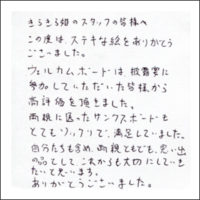 きらきら姫のスタッフの皆様へ
この度は、ステキな絵をありがとう
ございました。
ウェルカムボードは披露宴に
参加していただいた皆様から
高評価を頂きました。
両親に送ったサンクスボードも
とてもソックリで、満足していました。
自分たちも含め、両親ともども、思い出
の品として これからも大切にしていき
たいと思います。
ありがとうございました。